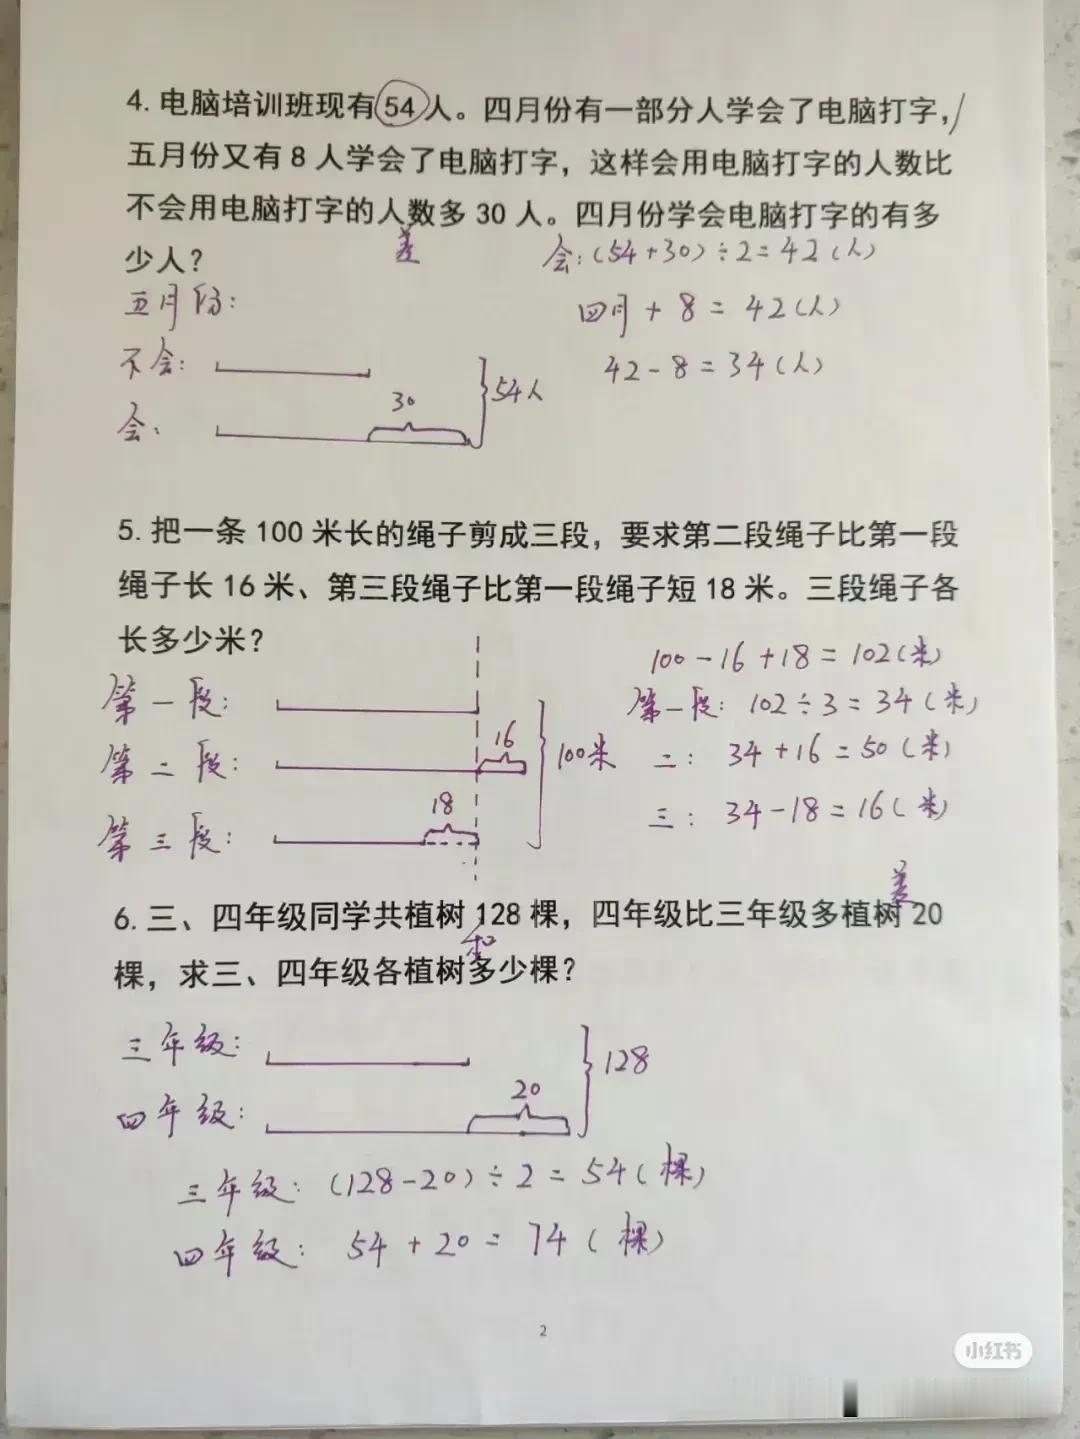 4. 电脑培训班现有54人。四月份有一部分人学会了电脑打字，
五月份又有8人学会了电脑打字，这样会用电脑打字的人数比
不会用电脑打字的人数多30人。四月份学会电脑打字的有多
少人？
差
会：(54+30)÷2=42(人)
五月份：
四月+8=42(人)
不会：
42-8=34(人)
30
54人
会：
5. 把一条100米长的绳子剪成三段，要求第二段绳子比第一段
绳子长16米、第三段绳子比第一段绳子短18米。三段绳子各
长多少米？
100-16+18=102(米)
第一段：
第一段：102÷3=34(米)
16
第二段：
100米
二：34+16=50(米)
18
第三段：
三：34-18=16(米)
差
6. 三、四年级同学共植树128棵，四年级比三年级多植树20
和
棵，求三、四年级各植树多少棵？
三年级：
128
20
四年级：
三年级：(128-20)÷2=54(棵)
四年级：54+20=74(棵)
2
小红书